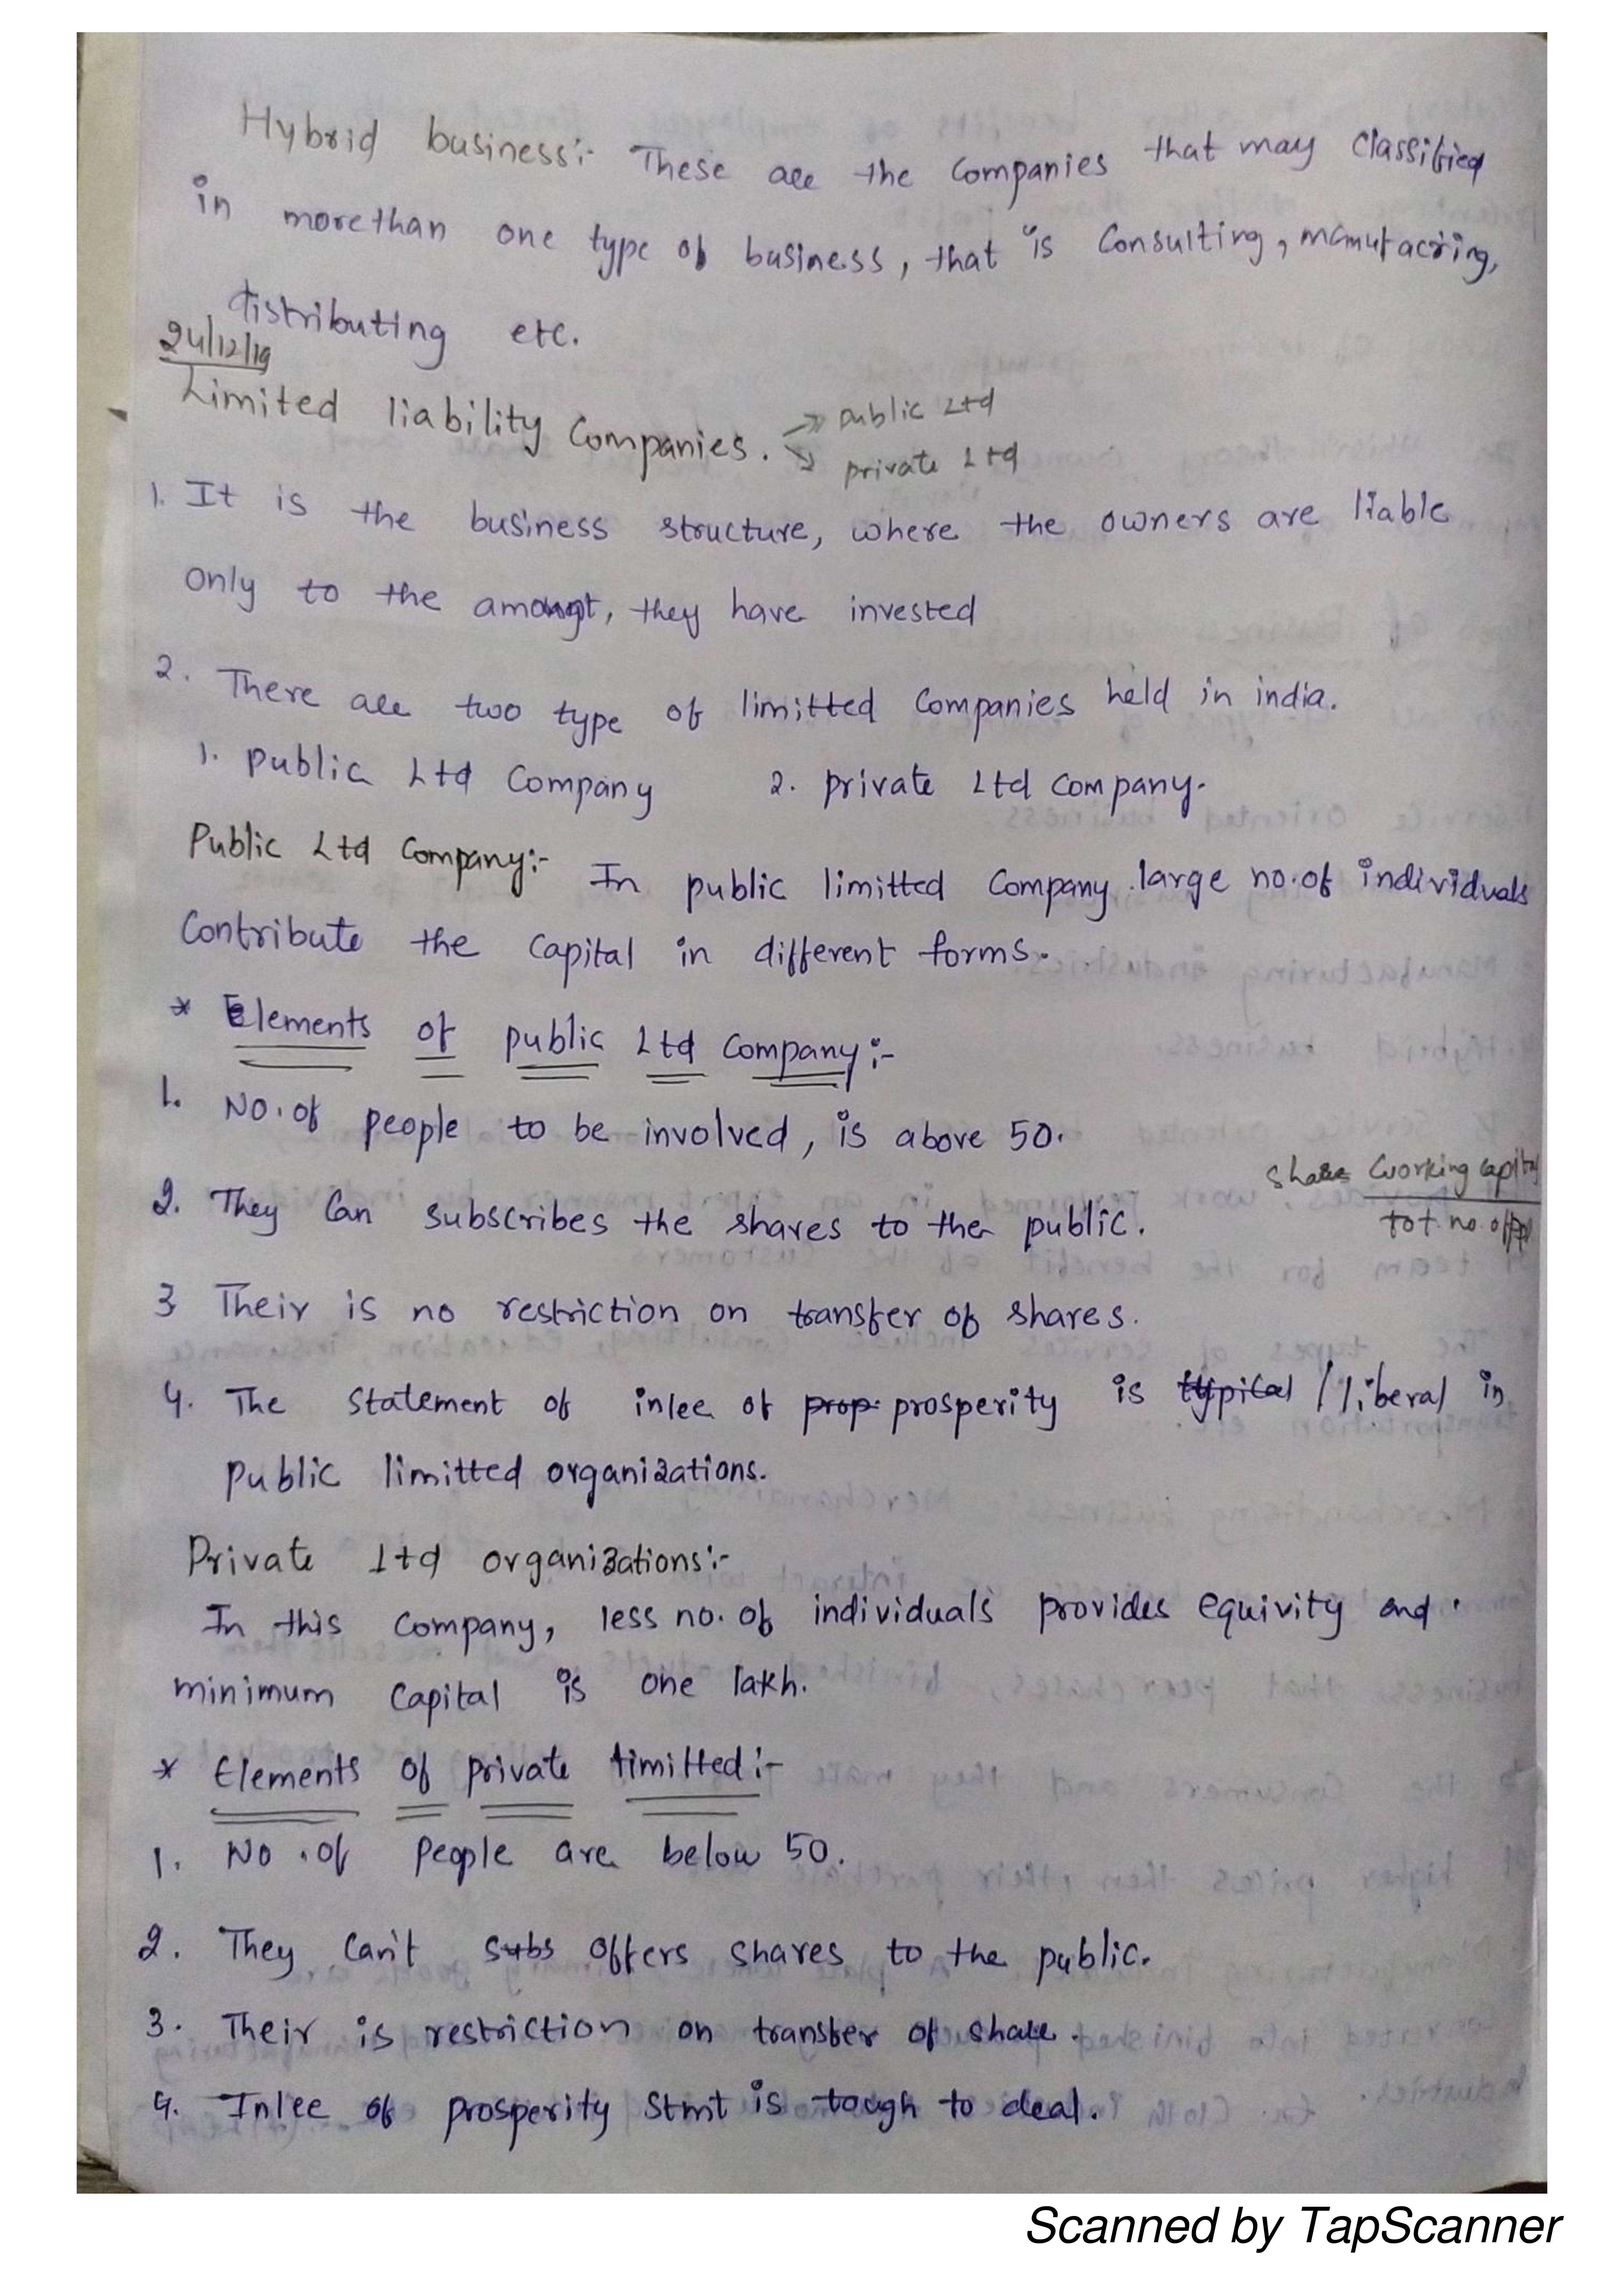 Hybrid business:- These are the Companies that may Classified
in morethan one type of business, that is Consulting, manufacring,
distributing etc.
24/12/19
Limited liability Companies. → public Ltd
→ private Ltd
1. It is the business structure, where the owners are liable
only to the amount, they have invested
2. There are two type of limitted Companies held in india.
1. Public Ltd Company 2. private Ltd Company.
Public Ltd Company:- In public limitted Company large no. of individuals
Contribute the Capital in different forms.
* Elements of public Ltd Company:-
1. No. of people to be involved, is above 50.
share Working capital
2. They Can subscribes the shares to the public.
tot. no. of
3 Their is no restriction on transfer of shares.
4. The Statement of inlee of prop. prosperity is typical / liberal in
Public limitted organizations.
Private Ltd organizations:-
In this Company, less no. of individuals provides equivity and
minimum Capital is one lakh.
* Elements of private limitted:-
1. No. of People are below 50.
2. They Can't subs offers shares to the public.
3. Their is restriction on transfer of share.
4. Inlee of prosperity Stmt is tough to deal.
Scanned by TapScanner